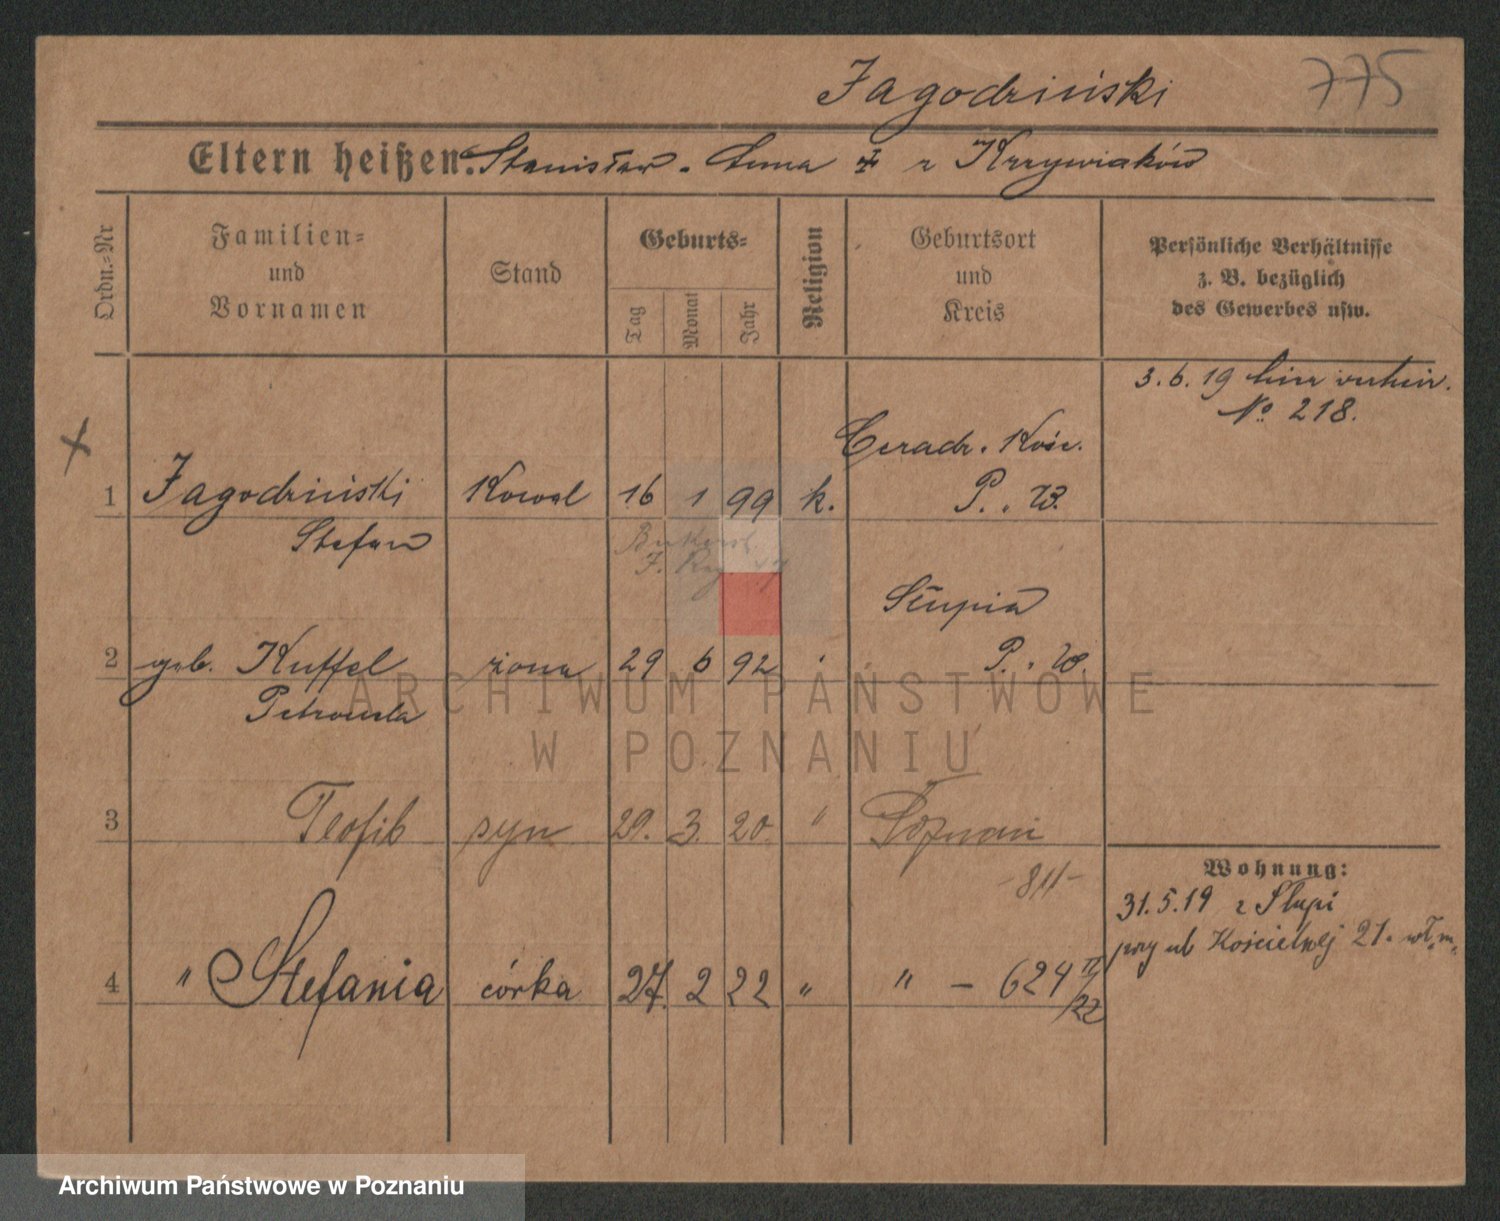 Jagodziński 775
Eltern heißen: Stanisław - Anna z Krzywiaków
Ordn.-Nr
Familien- und Vornamen
Stand
Geburts-
Tag
Monat
Jahr
Religion
Geburtsort und Kreis
Persönliche Verhältnisse
z. B. bezüglich
des Gewerbes usw.
3. 6. 19 hier
No 218.
Ceradz. Kość.
1 Jagodziński Kowal 16 1 99 k. P. . W.
Stefan
Słupia
2 geb. Kuffel żona 29 6 92 P. . W.
Petronela
3 Teofil syn 29. 3. 20 " Poznań
- 811 -
Wohnung:
31. 5. 19 z Słupi
przy ul Kościelnej 21.
4 " Stefania córka 27. 2 22 " " - 624 IV/22
ARCHIWUM PAŃSTWOWE
W POZNANIU
Archiwum Państwowe w Poznaniu